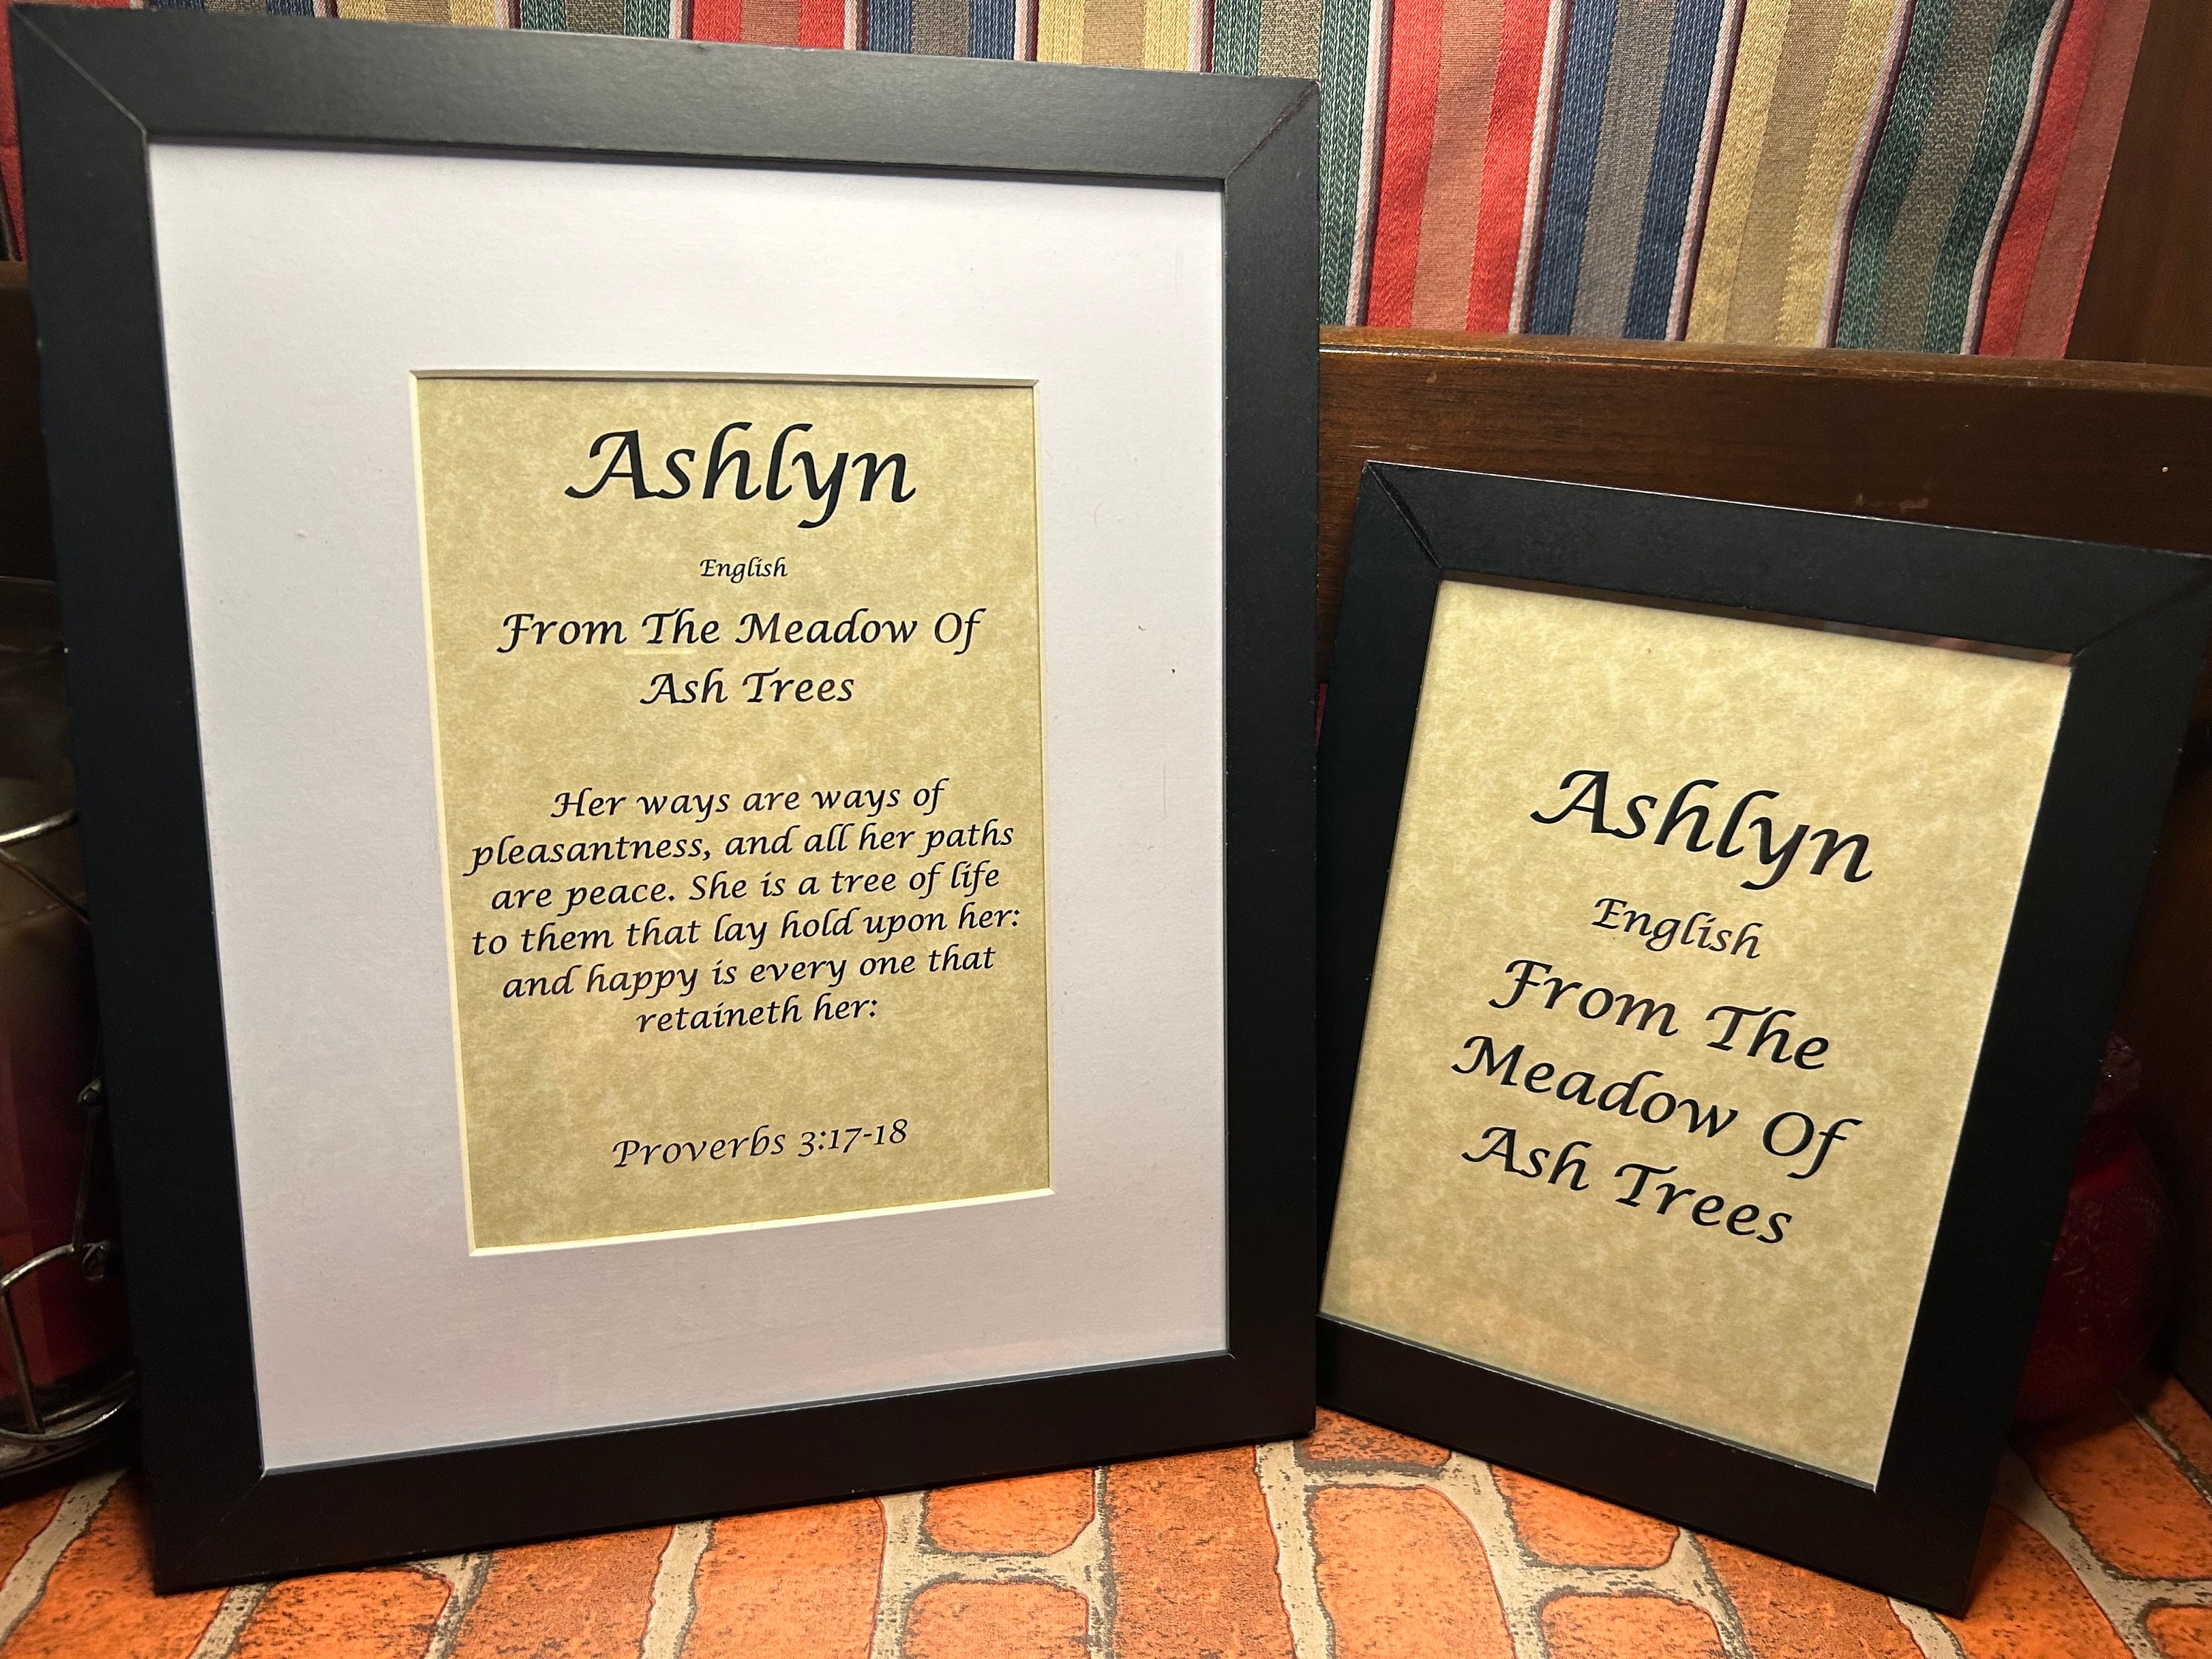 Ashlyn
English
From The Meadow Of
Ash Trees
Her ways are ways of
pleasantness, and all her paths
are peace. She is a tree of life
to them that lay hold upon her:
and happy is every one that
retaineth her:
Proverbs 3:17-18
Ashlyn
English
From The
Meadow Of
Ash Trees